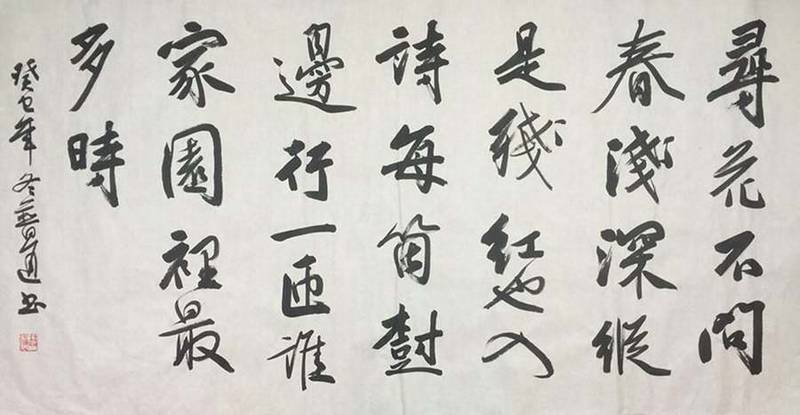 尋花不問
春淺深縱
是殘紅也入
詩每箇樹
邊行一匝誰
家園裡最
多時
癸巳年冬普道书